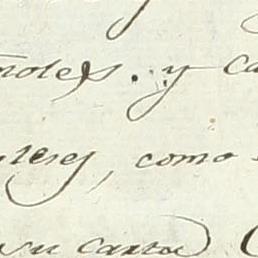 ñoles. y ca
teres, como
su carta